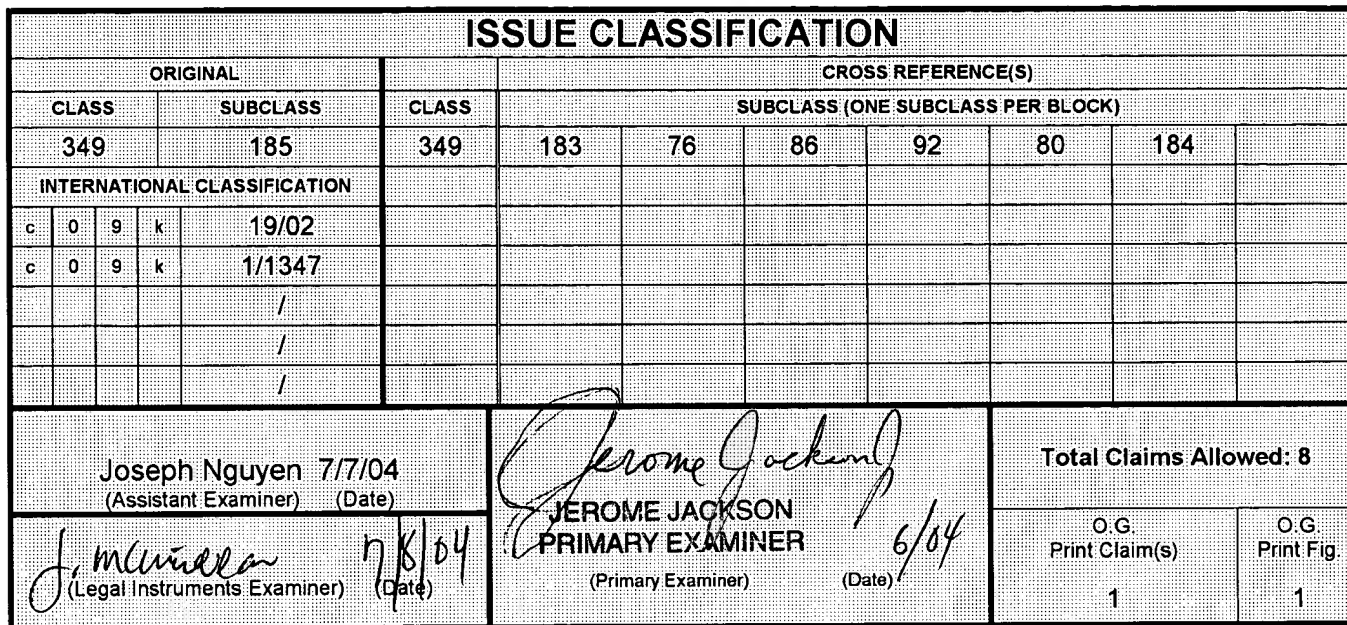 ISSUE CLASSIFICATION
ORIGINAL CROSS REFERENCE(S)
CLASS SUBCLASS CLASS SUBCLASS (ONE SUBCLASS PER BLOCK)
349 185 349 183 76 86 92 80 184
INTERNATIONAL CLASSIFICATION
c 0 9 k 19/02
c 0 9 k 1/1347
/
/
/
Joseph Nguyen 7/7/04
(Assistant Examiner) (Date)
7/8/04
(Legal Instruments Examiner) (Date)
Jerome Jackson
JEROME JACKSON
PRIMARY EXAMINER 6/04
(Primary Examiner) (Date)
Total Claims Allowed: 8
O.G.
Print Claim(s)
1
O.G.
Print Fig.
1